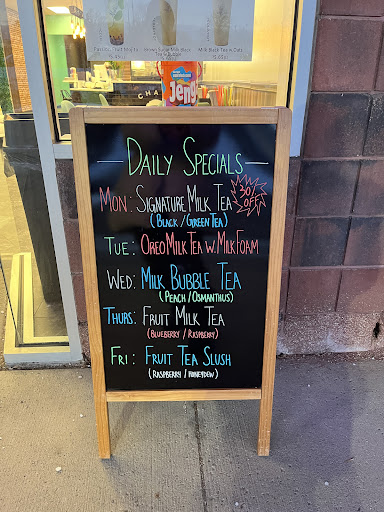 Milk Black Tea w Oats
Jenga
— DAILY SPECIALS —
MON: SIGNATURE MILK TEA
30% OFF
(BLACK / GREEN TEA)
TUE: OREO MILK TEA W. MILK FOAM
WED: MILK BUBBLE TEA
(PEACH / OSMANTHUS)
THURS: FRUIT MILK TEA
(BLUEBERRY / RASPBERRY)
FRI: FRUIT TEA SLUSH
(RASPBERRY / HONEYDEW)